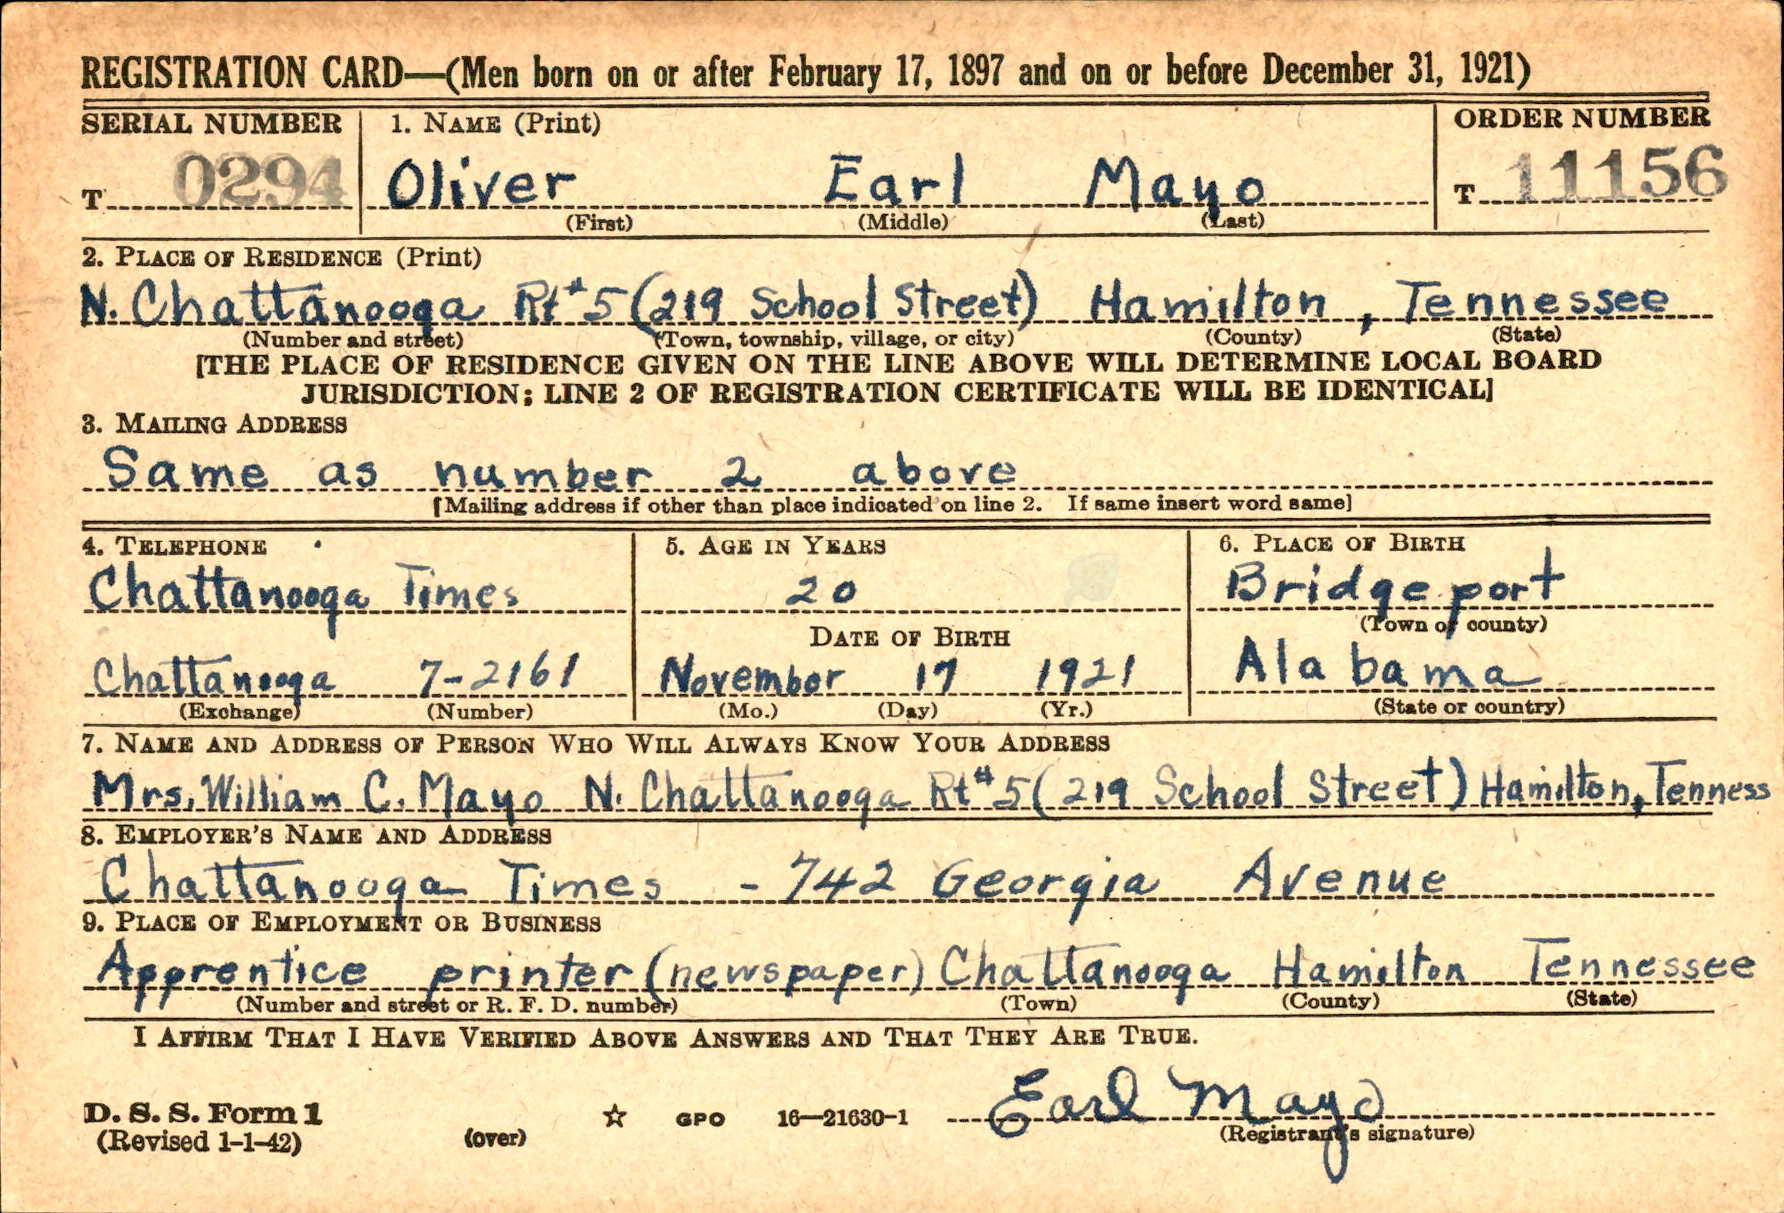 REGISTRATION CARD—(Men born on or after February 17, 1897 and on or before December 31, 1921)
SERIAL NUMBER 1. NAME (Print) ORDER NUMBER
T 0294 Oliver Earl Mayo T 11156
(First) (Middle) (Last)
2. PLACE OF RESIDENCE (Print)
N. Chattanooga Rt#5 (219 School Street) Hamilton, Tennessee
(Number and street) (Town, township, village, or city) (County) (State)
[THE PLACE OF RESIDENCE GIVEN ON THE LINE ABOVE WILL DETERMINE LOCAL BOARD
JURISDICTION; LINE 2 OF REGISTRATION CERTIFICATE WILL BE IDENTICAL]
3. MAILING ADDRESS
Same as number 2 above
[Mailing address if other than place indicated on line 2. If same insert word same]
4. TELEPHONE 5. AGE IN YEARS 6. PLACE OF BIRTH
Chattanooga Times 20 Bridgeport
DATE OF BIRTH (Town or county)
Chattanooga 7-2161 November 17 1921 Alabama
(Exchange) (Number) (Mo.) (Day) (Yr.) (State or country)
7. NAME AND ADDRESS OF PERSON WHO WILL ALWAYS KNOW YOUR ADDRESS
Mrs. William C. Mayo N. Chattanooga Rt#5 (219 School Street) Hamilton, Tenness
8. EMPLOYER'S NAME AND ADDRESS
Chattanooga Times - 742 Georgia Avenue
9. PLACE OF EMPLOYMENT OR BUSINESS
Apprentice printer (newspaper) Chattanooga Hamilton Tennessee
(Number and street or R. F. D. number) (Town) (County) (State)
I AFFIRM THAT I HAVE VERIFIED ABOVE ANSWERS AND THAT THEY ARE TRUE.
Earl Mayo
D. S. S. Form 1 GPO 16—21630-1
(Revised 1-1-42) (over) (Registrant's signature)